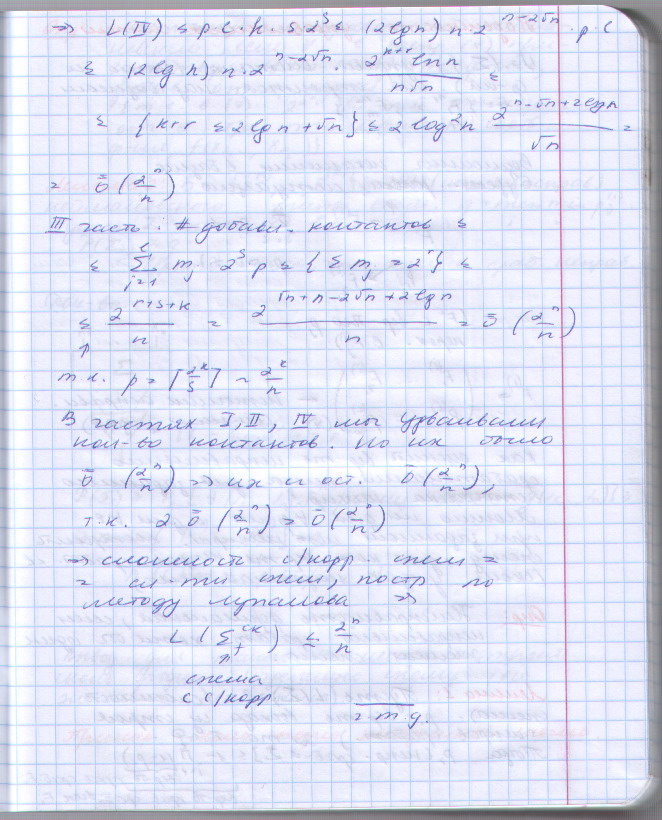 => L(IV) ≤ p·l·k·s·2^s ≤ (2lg n) n·2^{n-2√n}·p·l
≤ (2lg n) n·2^{n-2√n} · 2^{k+r} ln n / n√n ≤
≤ {k+r ≤ 2lg n + √n} ≤ 2 log²n 2^{n-√n+2lg n} / √n =
= ō (2^n / n)
III часть: # добавл. контактов ≤
≤ Σ_{j=1}^{l} m_j 2^s p = {Σ m_j = 2^r} ≤
≤ 2^{r+s+k} / n = 2^{√n+n-2√n+2lg n} / n = ō (2^n / n)
↑
т.к. p = ⌈2^k / s⌉ ~ 2^k / n
В частях I, II, IV мы удваивали
кол-во контактов. Но их было
ō (2^n / n) => их и ост. ō (2^n / n),
т.к. 2 ō (2^n / n) = ō (2^n / n)
=> сложность с/корр. схем =
= сл-ти схем, постр по
методу Лупанова =>
L (Σ_f^{ск}) ≲ 2^n / n
↑
схема
с с/корр
ч т д.